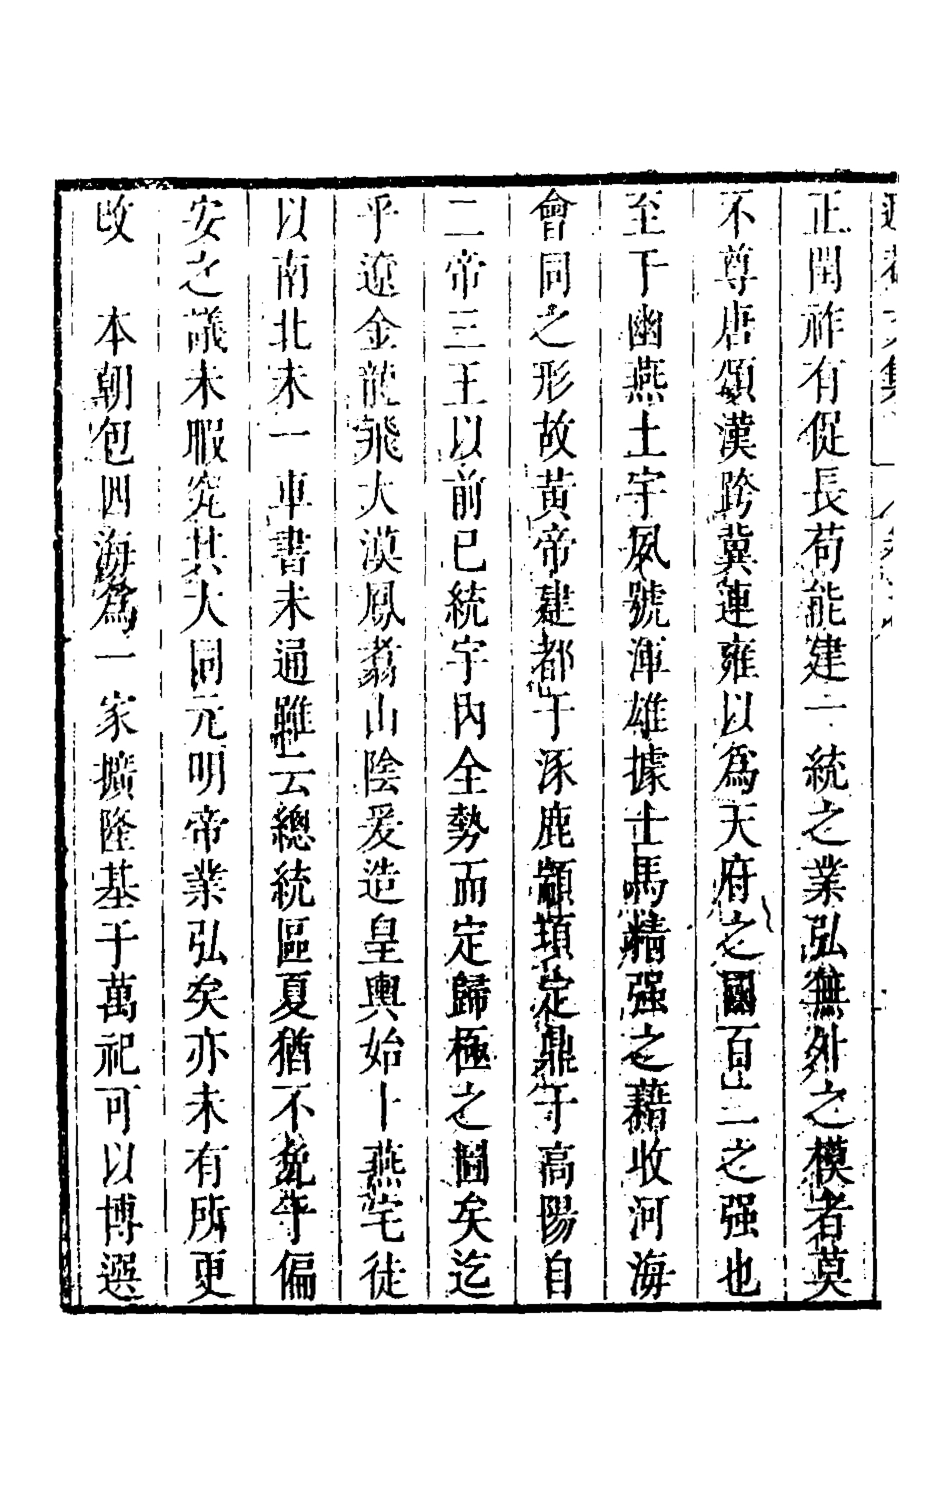 正閏祚有促長苟能建一統之業弘無外之模者莫
不尊唐頌漢跨冀連雍以爲天府之國百二之强也
至于幽燕土宇夙號渾雄據士馬精强之藉收河海
會同之形故黃帝建都于涿鹿顓頊定鼎于高陽自
二帝三王以前已統宇內全勢而定歸極之圖矣迄
乎遼金龍飛大漠鳳翥山陰爰造皇輿始卜燕宅徒
以南北未一車書未通雖云總統區夏猶不免乎偏
安之議未暇究其大同元明帝業弘矣亦未有所更
改　本朝包四海爲一家擴隆基于萬祀可以博選